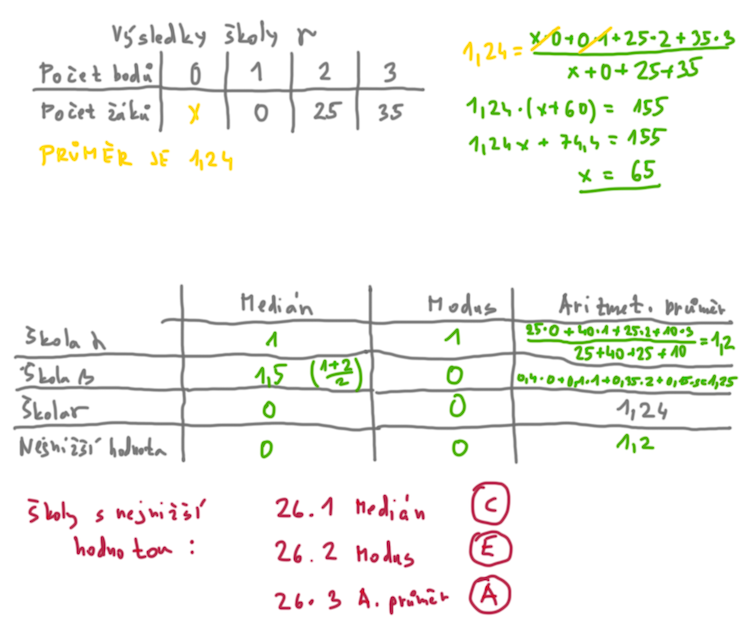 Výsledky školy r
Počet bodů 0 1 2 3
Počet žáků x 0 25 35
PRŮMĚR JE 1,24
1,24 = x·0+0·1+25·2+35·3
x+0+25+35
1,24·(x+60) = 155
1,24x + 74,4 = 155
x = 65
Medián Modus Aritmet. průměr
Škola A 1 1 25·0+40·1+25·2+10·3 = 1,2
25+40+25+10
Škola B 1,5 (1+2/2) 0 0,4·0+0,1·1+0,35·2+0,15·3=1,25
Škola r 0 0 1,24
Nejnižší hodnota 0 0 1,2
Školy s nejnižší
hodnotou:
26.1 Medián C
26.2 Modus E
26.3 A. průměr A